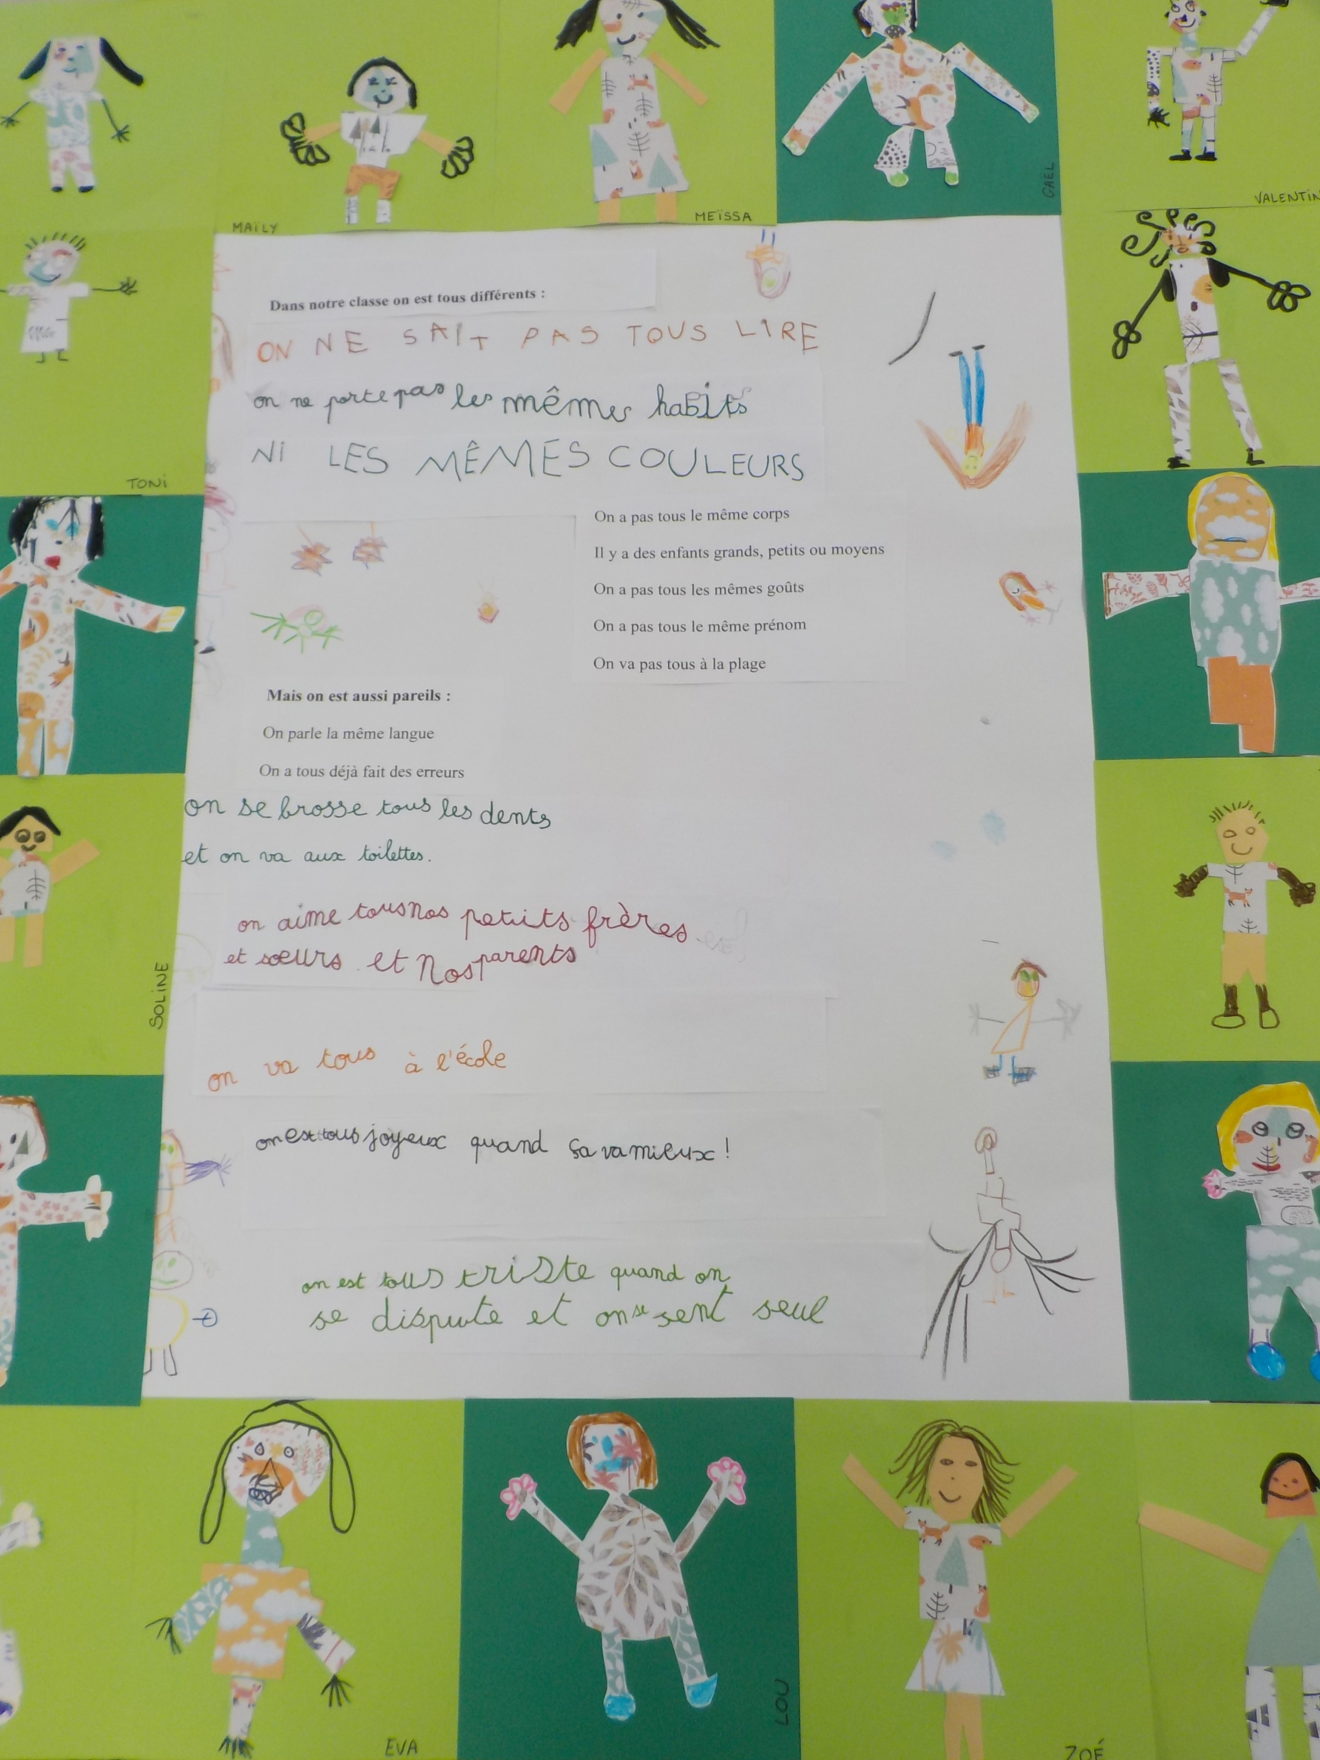 MAÏLY
MEÏSSA
GAEL
VALENTIN
Dans notre classe on est tous différents :
ON NE SAIT PAS TOUS LIRE
on ne porte pas les mêmes habits
NI LES MÊMES COULEURS
TONI
On a pas tous le même corps
Il y a des enfants grands, petits ou moyens
On a pas tous les mêmes goûts
On a pas tous le même prénom
On va pas tous à la plage
Mais on est aussi pareils :
On parle la même langue
On a tous déjà fait des erreurs
on se brosse tous les dents
et on va aux toilettes.
on aime tous nos petits frères
et sœurs et nos parents
SOLINE
on va tous à l'école
on est tous joyeux quand sa va mieux !
on est tous triste quand on
se dispute et on se sent seul
EVA
LOU
ZOÉ